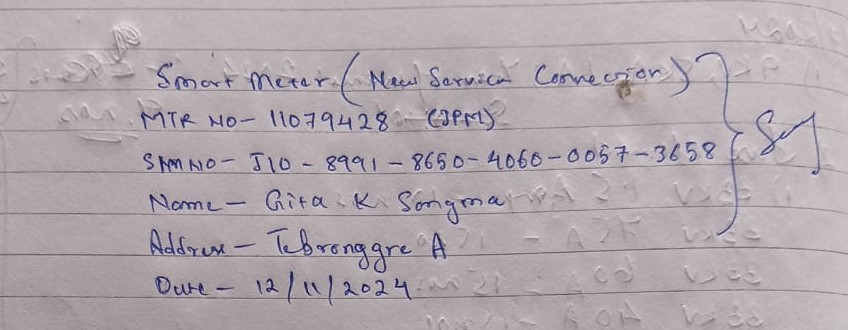 Smart Meter (New Service Connection)
MTR NO- 11079428 (JPM)
SIM NO- J10 - 8991 - 8650 - 4060 - 0057 - 3658
Name - Gita K Songma
Address - Tebronggre A
Date - 12/11/2024